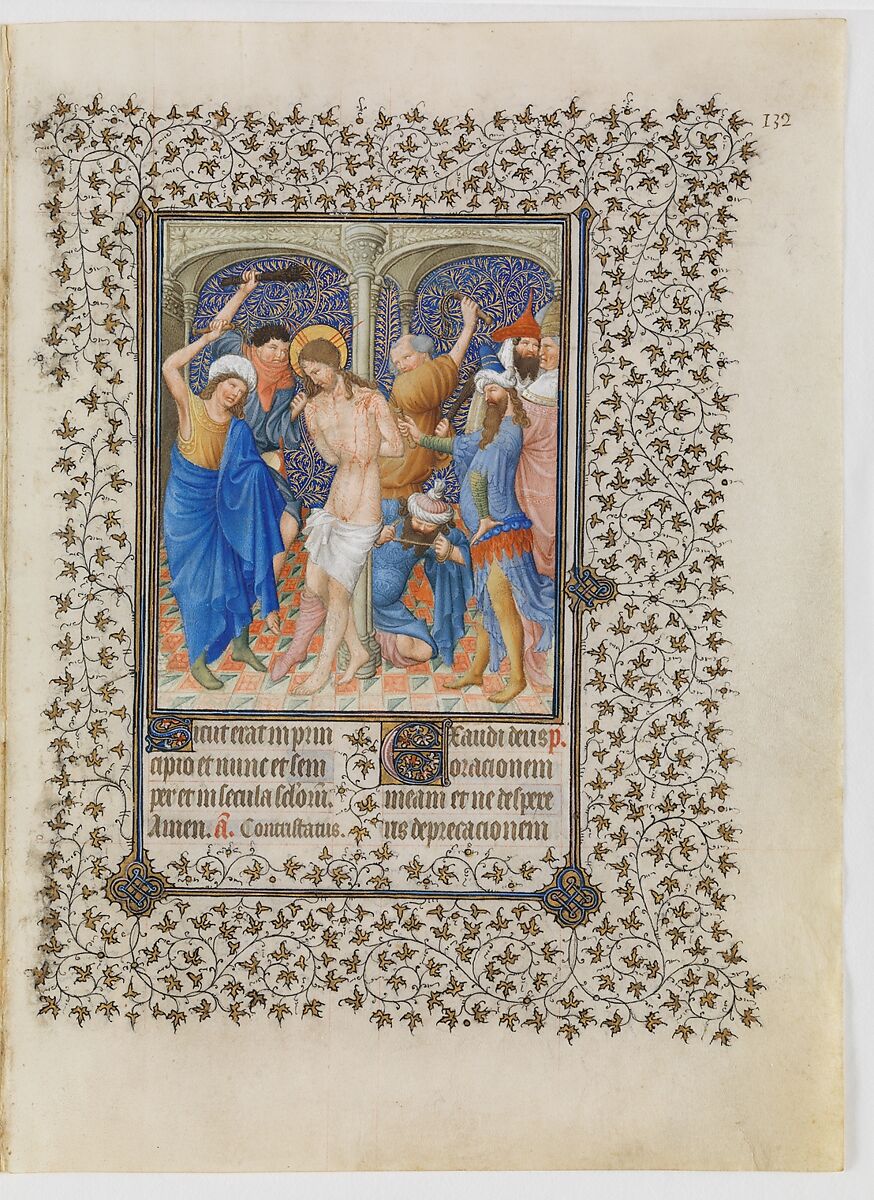 132
Sicut erat in prin
cipio et nunc et sem
per et in secula sclorum.
Amen. a. Contristatus.
Exaudi deus p.
oracionem
meam et ne despexe
ris deprecacionem